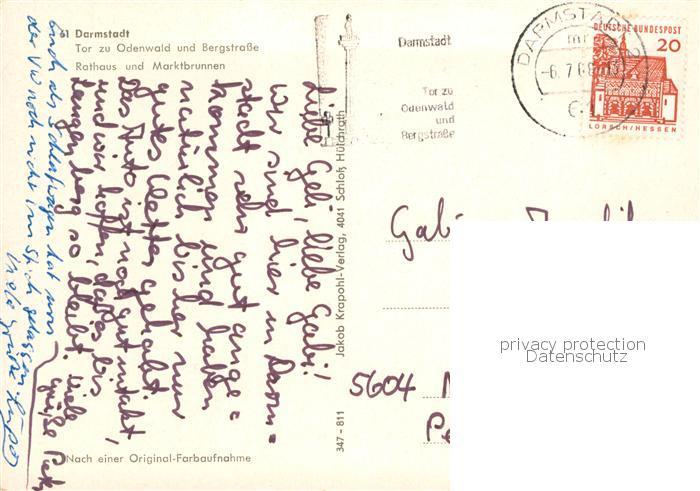 61 Darmstadt
Tor zu Odenwald und Bergstraße
Rathaus und Marktbrunnen
Liebe Gabi, liebe Gabi!
Wir sind hier in Darm=
stadt sehr gut ange=
kommen und haben
natürlich bisher nur
gutes Wetter gehabt.
Das Auto ist noch gut intakt,
und wir hoffen, daß es bis
Langenberg so bleibt. Viele
Grüße
Auch als Schlafwagen hat uns
der VW noch nicht im Stich gelassen
Viele Grüße
Nach einer Original-Farbaufnahme
347 - 811
Jakob Krapohl-Verlag, 4041 Schloß Hülchrath
Darmstadt
Tor zu
Odenwald
und
Bergstraße
DARMSTADT 2
-6.7.68
DEUTSCHE BUNDESPOST
20
LORSCH/HESSEN
5604
privacy protection
Datenschutz